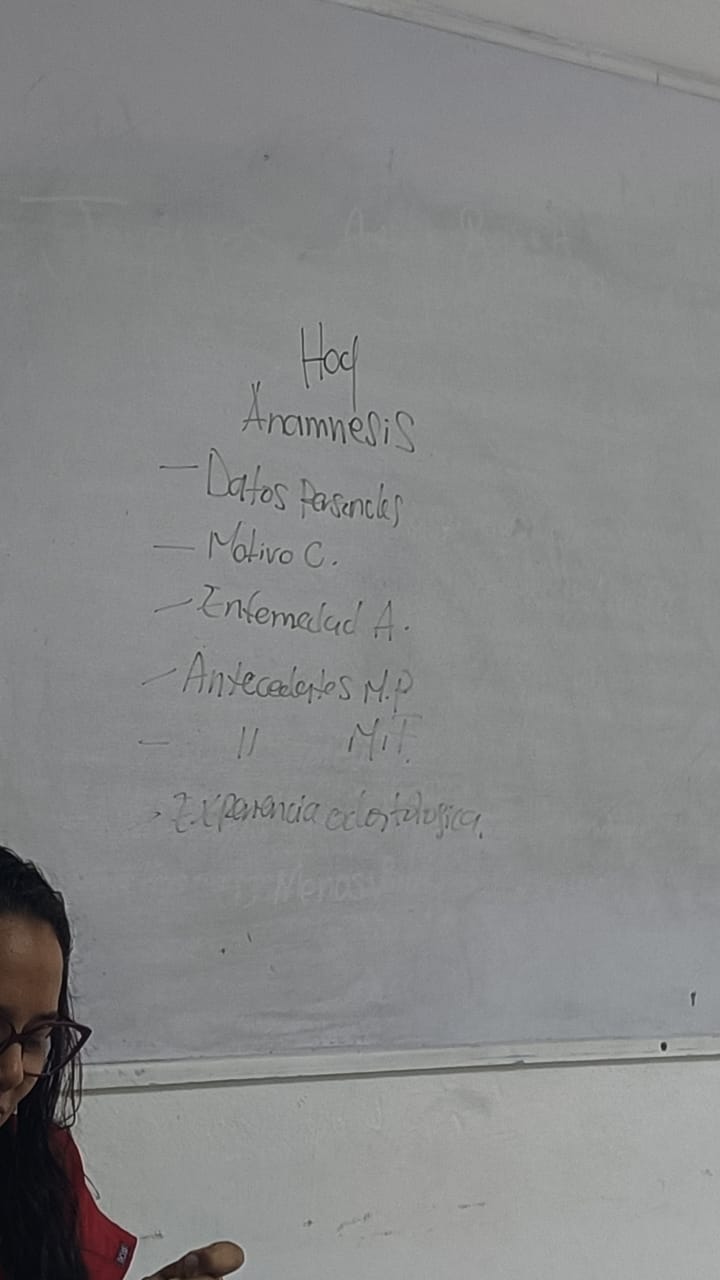 Hoy
Anamnesis
— Datos Personales
— Motivo C.
— Enfermedad A.
— Antecedentes M.P
— " M.F.
- Experiencia odontologica.
Menos